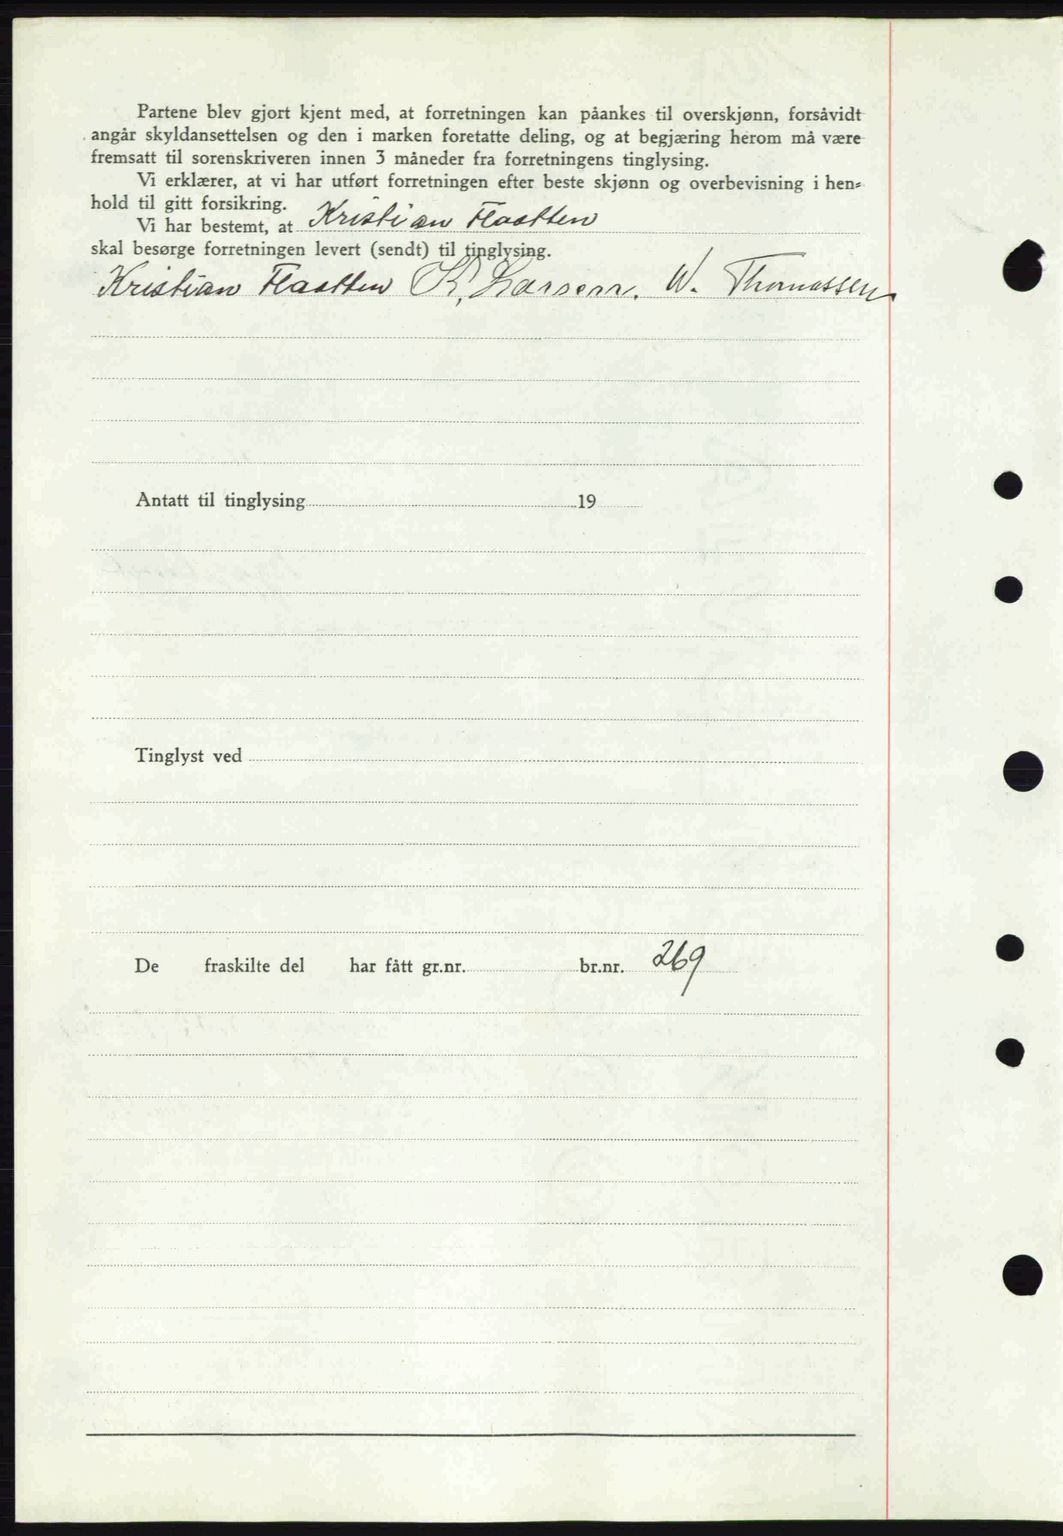 Partene blev gjort kjent med, at forretningen kan påankes til overskjønn, forsåvidt
angår skyldansettelsen og den i marken foretatte deling, og at begjæring herom må være
fremsatt til sorenskriveren innen 3 måneder fra forretningens tinglysing.
Vi erklærer, at vi har utført forretningen efter beste skjønn og overbevisning i hen-
hold til gitt forsikring.
Vi har bestemt, at Kristian Flaatten
skal besørge forretningen levert (sendt) til tinglysing.
Kristian Flaatten K. Larsen. W. Thomassen
Antatt til tinglysing 19
Tinglyst ved
De fraskilte del har fått gr.nr. br.nr. 269